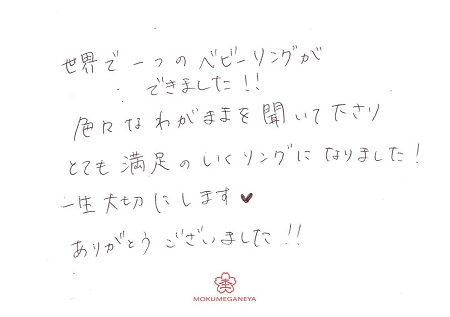 世界で一つのベビーリングが
できました!!
色々なわがままを聞いて下さり
とても満足のいくリングになりました!
一生大切にします♥
ありがとうございました!!
MOKUMEGANEYA